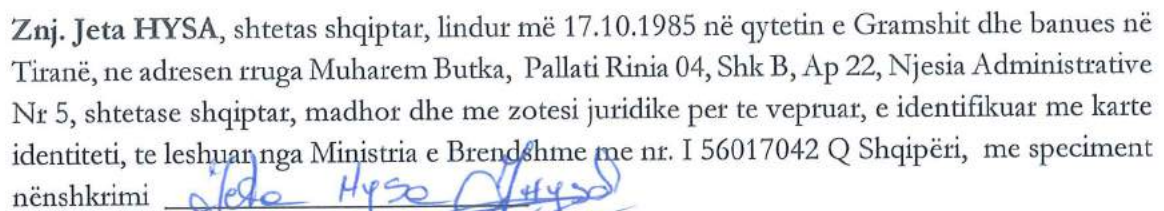 Znj. Jeta HYSA, shtetas shqiptar, lindur më 17.10.1985 në qytetin e Gramshit dhe banues në
Tiranë, ne adresen rruga Muharem Butka, Pallati Rinia 04, Shk B, Ap 22, Njesia Administrative
Nr 5, shtetase shqiptar, madhor dhe me zotesi juridike per te vepruar, e identifikuar me karte
identiteti, te leshuar nga Ministria e Brendshme me nr. I 56017042 Q Shqipëri, me speciment
nënshkrimi Jeta Hysa JHysa